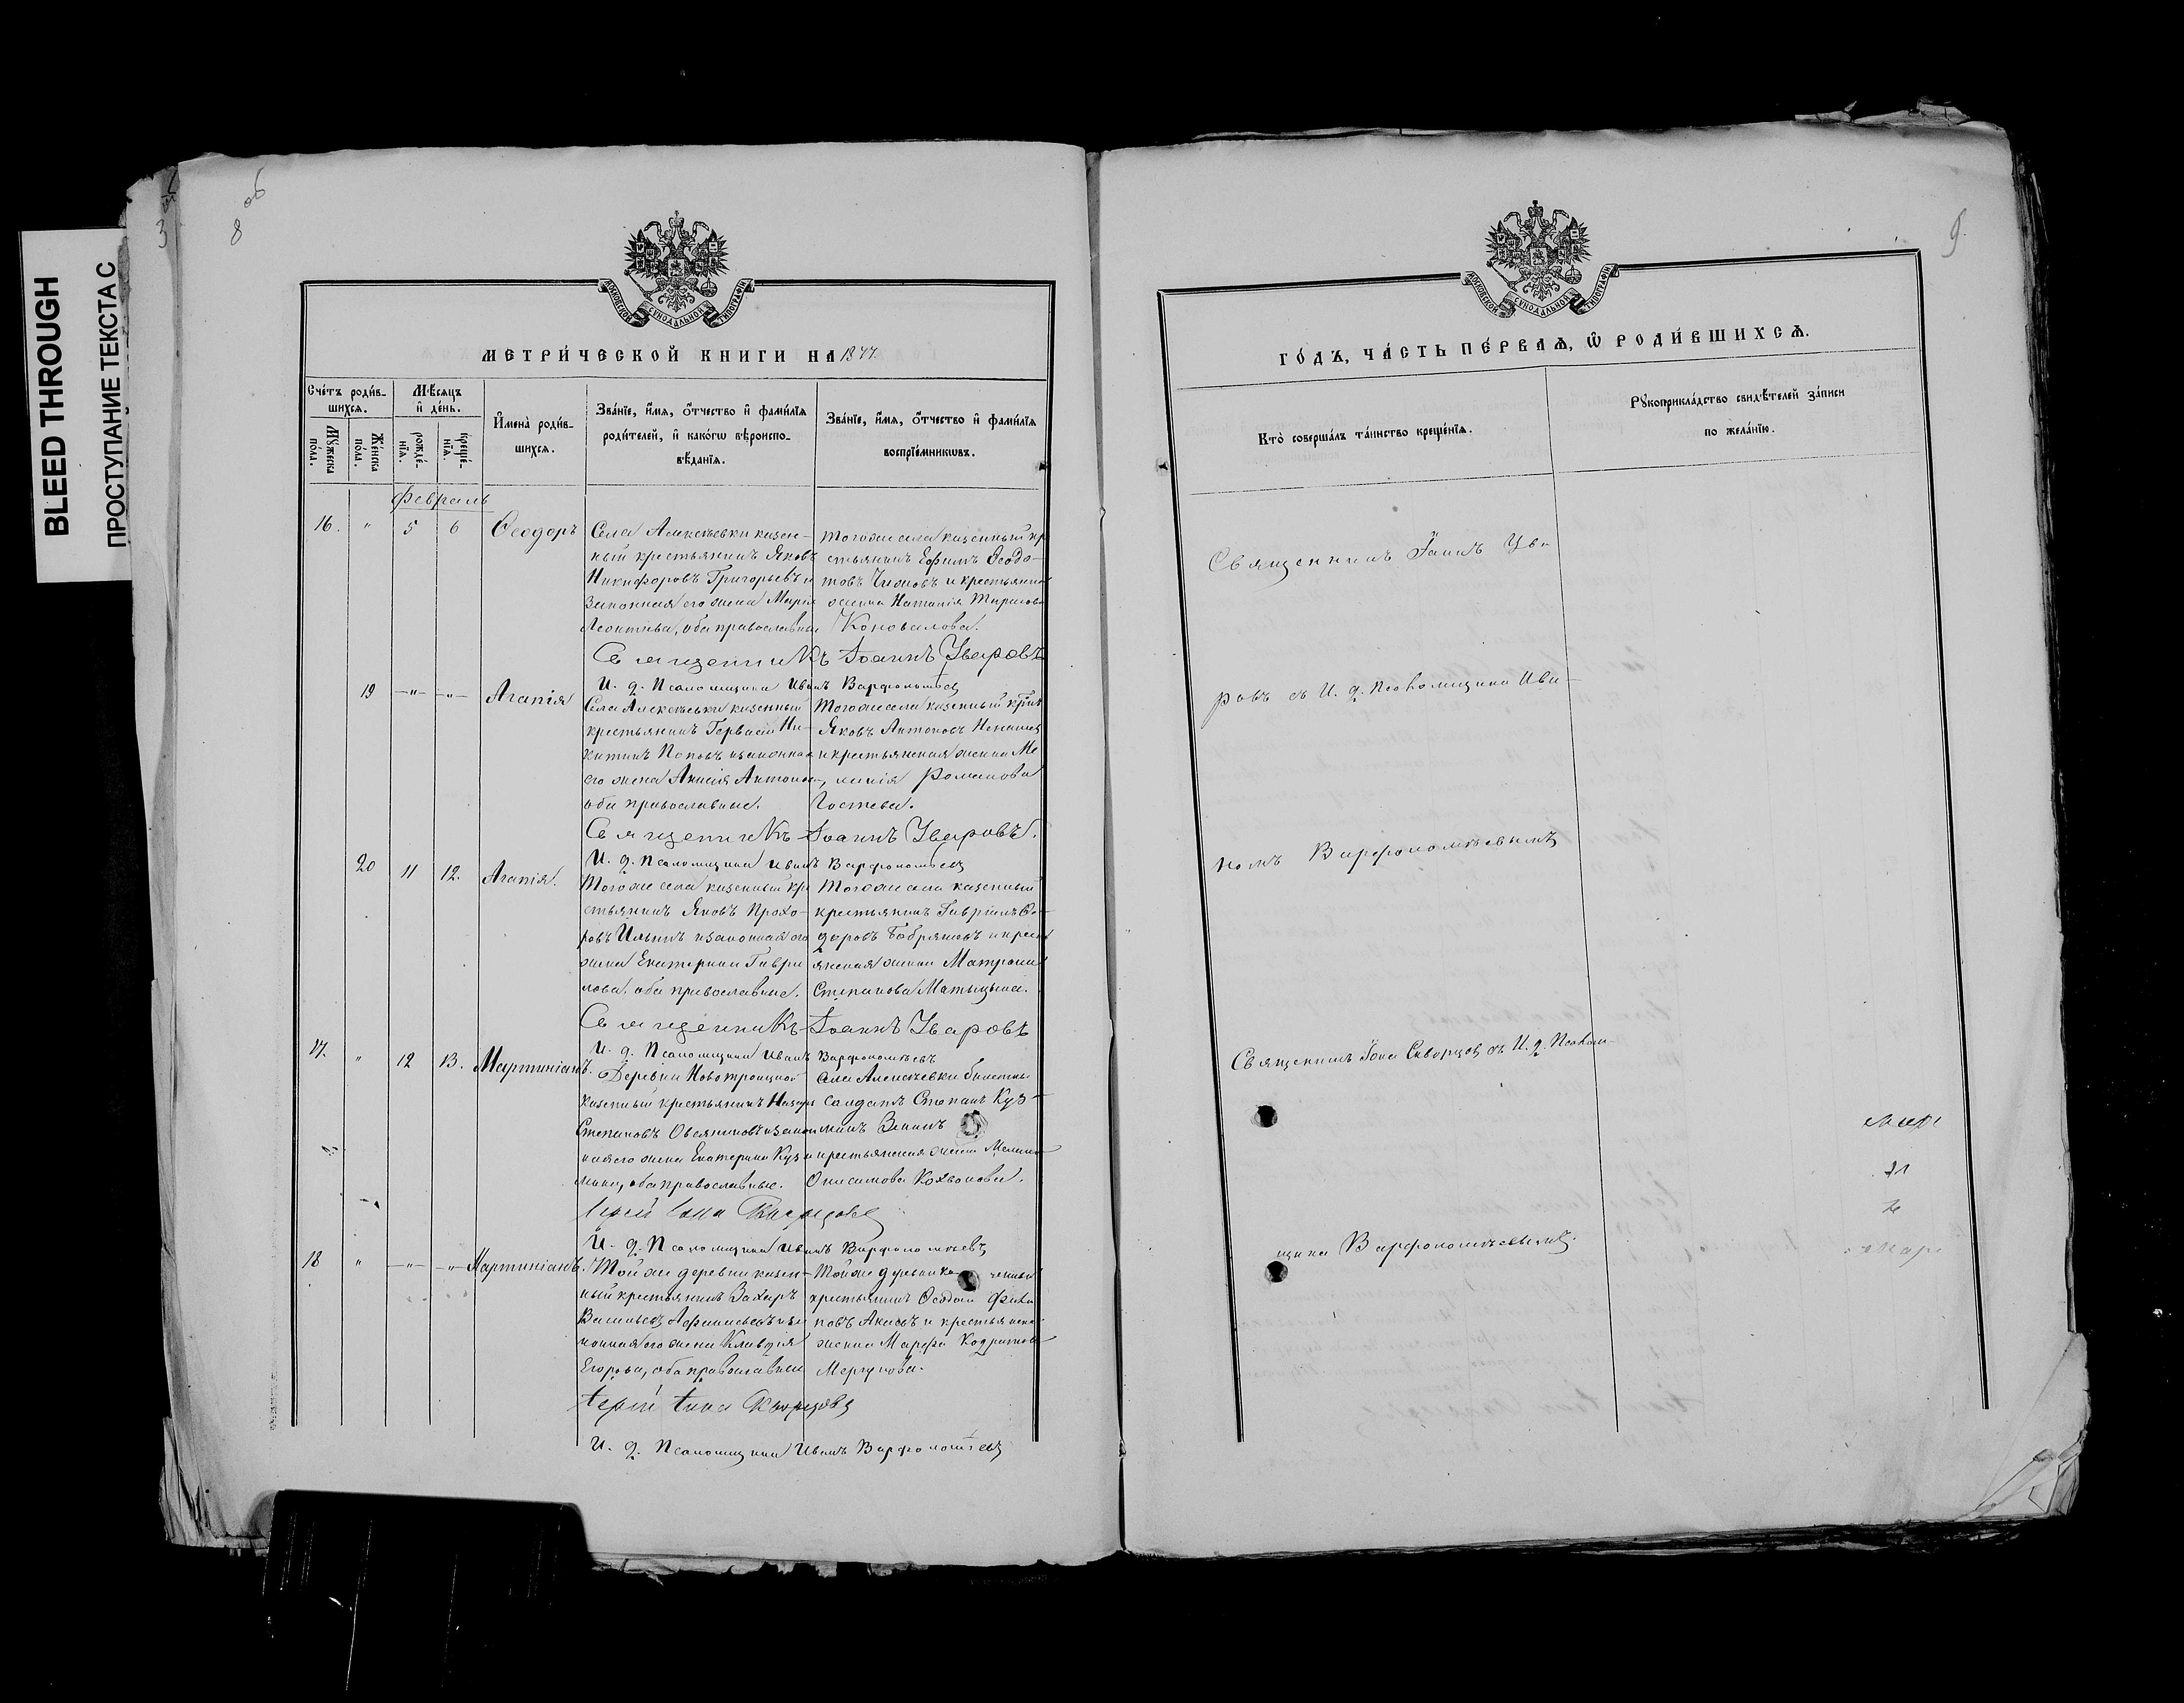 BLEED THROUGH
ПРОСТУПАНИЕ ТЕКСТА С
8 об
3
МОСКОВСКОЙ СѴНОДАЛЬНОЙ ТИПОГРАФІИ
МЕТРИ́ЧЕСКОЙ КНИГИ НА 1877.
Сче́тъ роди́в-
шихсѧ.
Мꙋ́жеска
по́ла.
Же́нска
по́ла.
Мѣ́сяцъ
и҆ де́нь.
рожде́-
нїѧ.
креще́-
нїѧ.
И҆мена̀ роди́в-
шихсѧ.
Зва́нїе, и҆́мѧ, ѻ҆́тчество и҆ фами́лїѧ
роди́телей, и҆ како́гѡ вѣроиспо-
вѣ́данїѧ.
Зва́нїе, и҆́мѧ, ѻ҆́тчество и҆ фами́лїѧ
воспрїе́мникѡвъ.
Февраль
16. " 5 6 Ѳеодоръ
Села Алексѣевки казен-
ный крестьянинъ Яковъ
Никифоровъ Григорьевъ и
законная его жена Марія
Леонтьева, оба православные
Тогоже села казенный кре
стьянинъ Ефимъ Ѳедо-
товъ и крестьянская
жена Наталія
Коновалова.
Священникъ Іоаннъ Уваровъ
И. д. Псаломщика Иванъ Варфоломѣевъ
19 —"— —"— Агапія
Села Алексѣевки казенный
крестьянинъ Гервасій Ни-
китинъ Поповъ и законная
его жена Анисія Антонова,
оба православные.
Тогоже села казенный
Яковъ Антоновъ
и крестьянская жена Ме
ланія Романова
Гостева.
Священникъ Іоаннъ Уваровъ.
И. д. Псаломщика Иванъ Варфоломѣевъ
20 11 12. Агапія.
Тогоже села казенный кре
стьянинъ Яковъ Прохо-
ровъ Ильинъ и законная его
жена Екатерина Гаври
лова, оба православные.
Тогоже села казенный
крестьянинъ Гавріилъ Ѳе-
доровъ Бобряшовъ и кресть
янская жена Матрона
Степанова Матыцына.
Священникъ Іоаннъ Уваровъ
И. д. Псаломщика Иванъ Варфоломѣевъ
17. " 12 13. Мартиніанъ.
Деревни Новотроицкой
казенный крестьянинъ Назаръ
Степановъ Овсяниковъ и закон
ная его жена Екатерина Кузь
мина, оба православные.
Села Алексѣевки билетный
солдатъ Степанъ Кузь-
минъ Зенинъ
и крестьянская жена Меланія
Онисимова
Іерей Іона Скворцовъ
И. д. Псаломщика Иванъ Варфоломѣевъ
18 " —"— —"— Мартиніанъ.
Той же деревни казен-
ный крестьянинъ Захаръ
Васильевъ Афанасьевъ и за
конная его жена Клавдія
Егорова, оба православные
Той же деревни ка
крестьянинъ Ѳедотъ Фили
повъ Акиовъ и крестьянская
жена Марфа Кодратова
Меркулова.
Іерей Іона Скворцовъ
И. д. Псаломщика Иванъ Варфоломѣевъ
9.
МОСКОВСКОЙ СѴНОДАЛЬНОЙ ТИПОГРАФІИ
ГО́ДЪ, ЧА́СТЬ ПЕ́РВАѦ, Ѡ҆ РОДИ́ВШИХСѦ.
Кто̀ соверша́лъ та́инство креще́нїѧ.
Рꙋкоприкла́дство свидѣ́телей за́писи
по жела́нїю.
Священникъ Іоаннъ Ува-
ровъ съ И. д. Псаломщика Ива-
номъ Варфоломѣевымъ
Священникъ Іона Скворцовъ съ И. д. Псалом-
щика Варфоломѣевымъ.